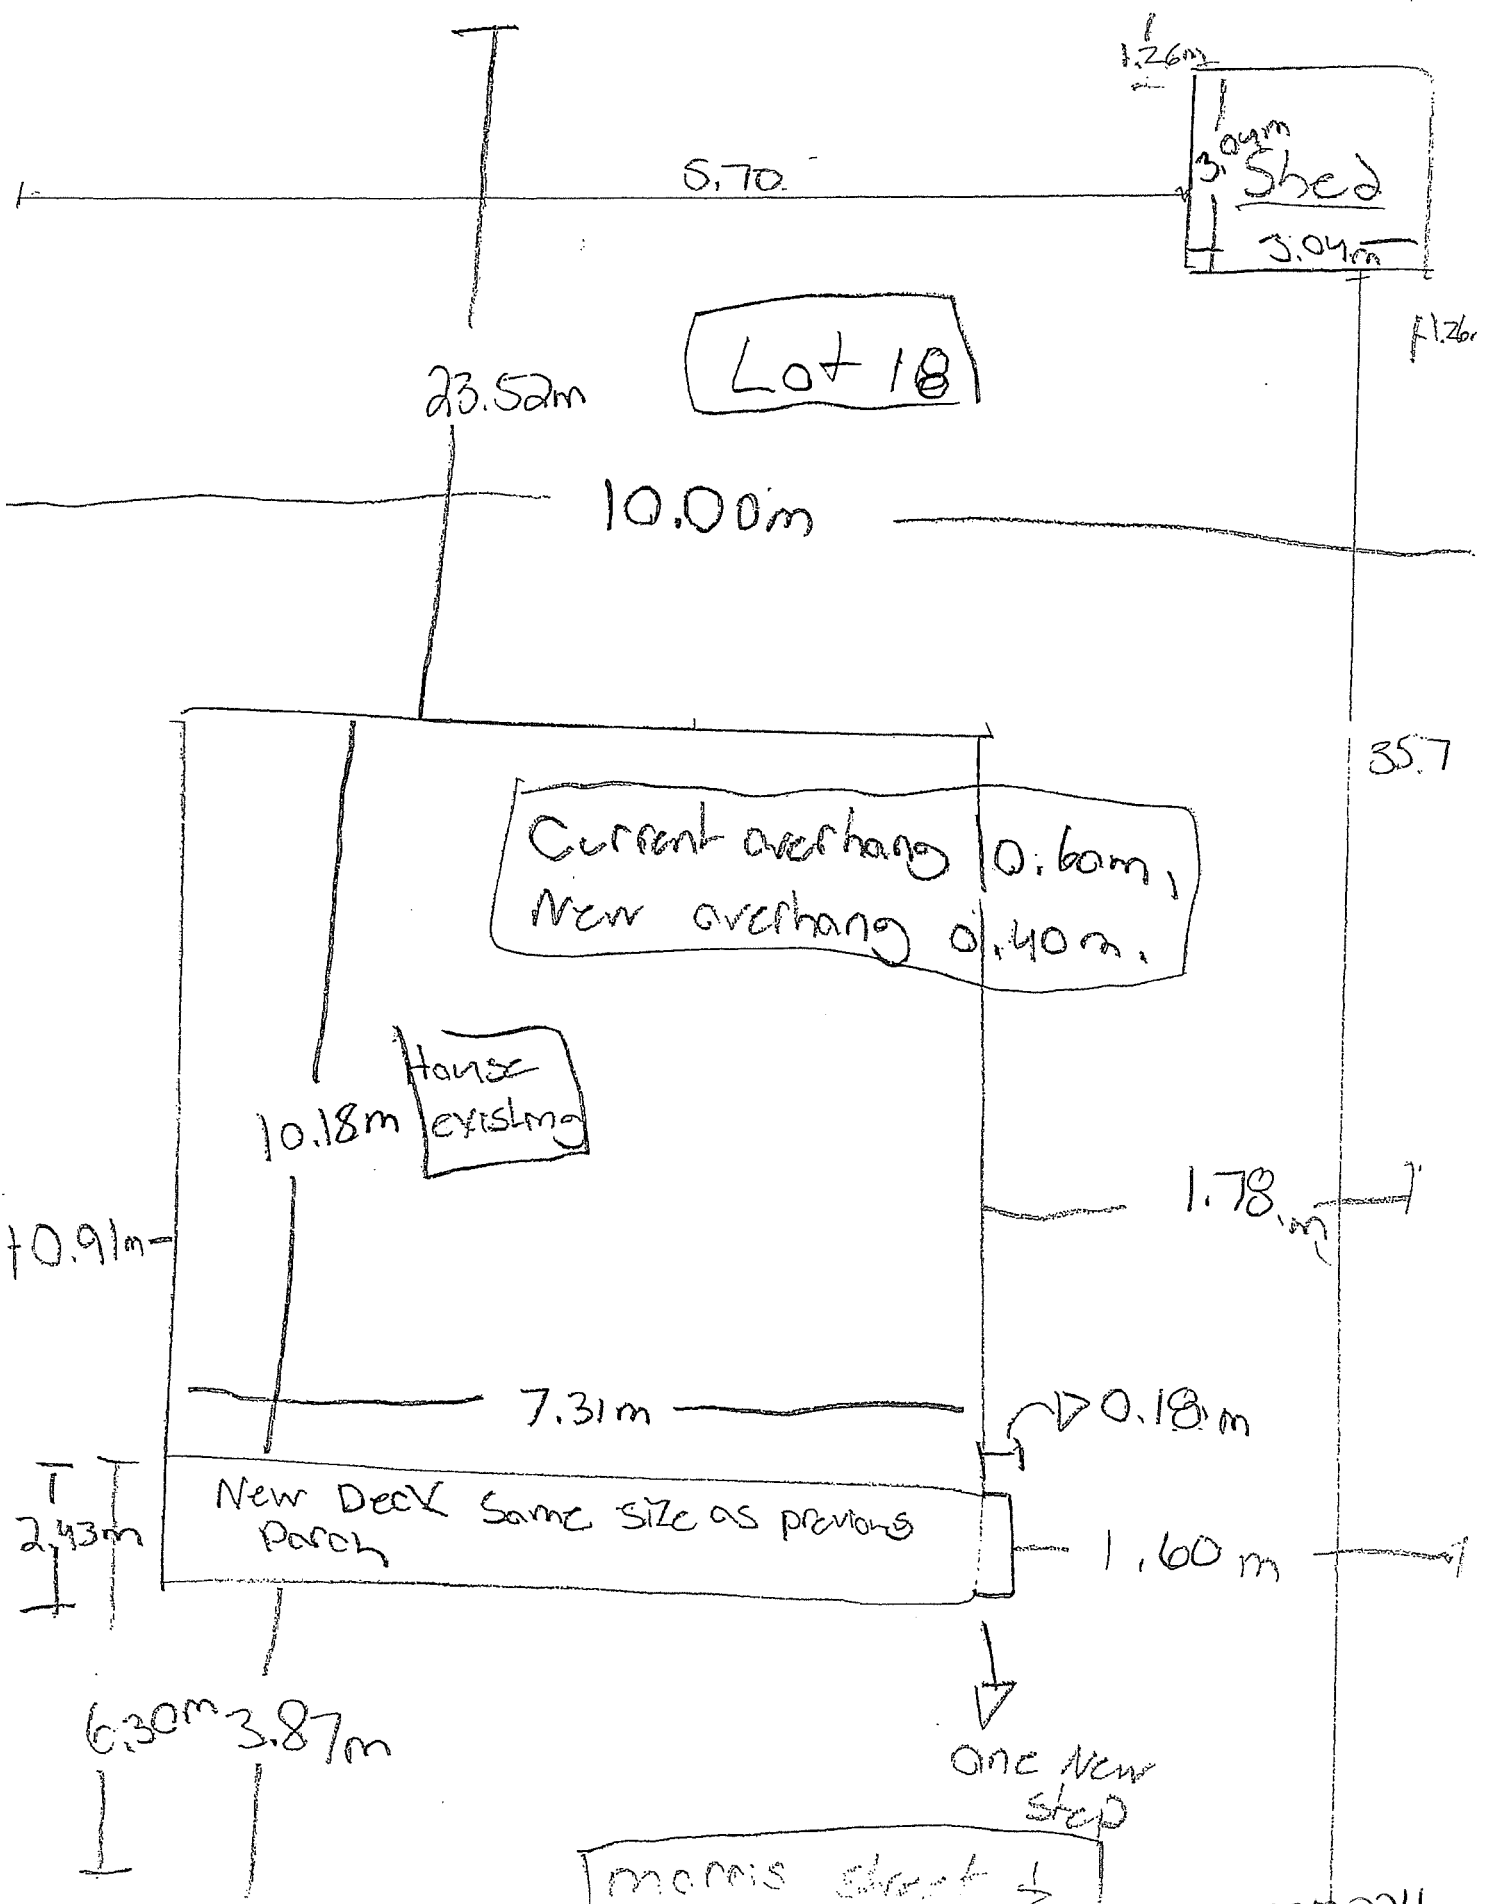 1.26m
3.04m
Shed
3.04m
5.70
1.26
Lot 18
23.52m
10.00m
35.7
Current overhang 0.60m,
New overhang 0.40m.
House
existing
10.18m
1.78m
0.91m
7.31m
0.18m
New Deck Same size as previous
Porch
2.43m
1.60m
6.30m
3.87m
One New
step
morris street